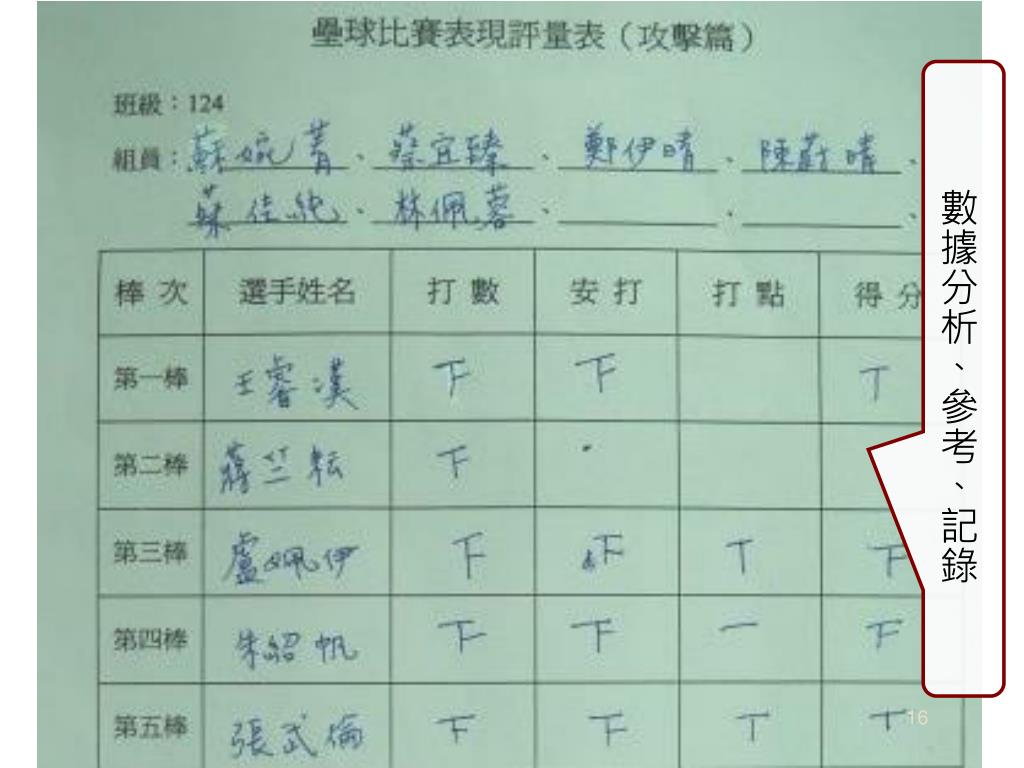 壘球比賽表現評量表（攻擊篇）
班級：124
組員：蘇婉菁、蔡宜臻、鄭伊晴、陳蔚晴、
佳純、林佩蓉、、、
棒次 選手姓名 打數 安打 打點 得分
第一棒 王睿漢 下 下 T
第二棒 蔣竺耘 下
第三棒 盧姵伊 下 下 T 下
第四棒 朱紹帆 下 下 一 下
第五棒 張武倫 下 下 T T
數據分析、參考、記錄
16